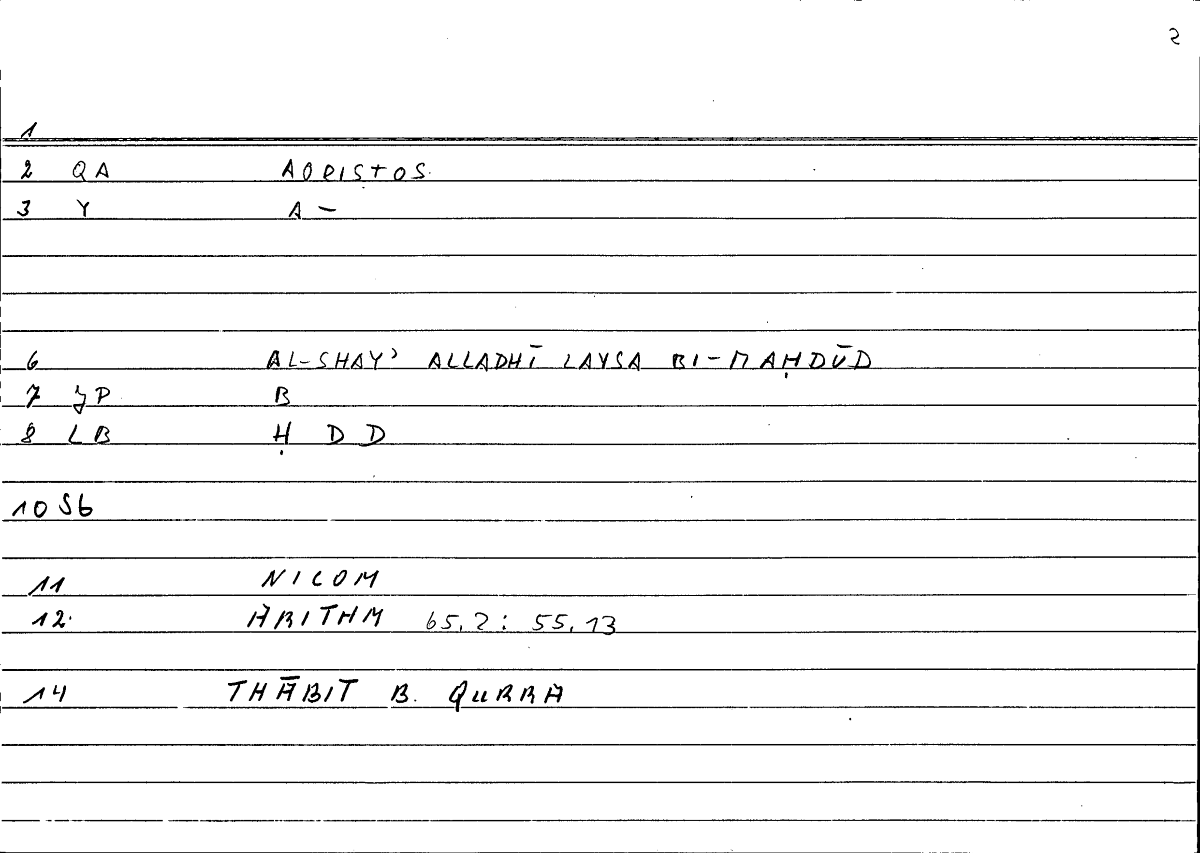 2
1
2 QA AORISTOS.
3 Y A -
6 AL-SHAY' ALLADHĪ LAYSA BI-MAḤDŪD
7 JP B
8 LB Ḥ D D
10 Sb
11 NICOM
12. ARITHM 65.2 : 55.13
14 THĀBIT B. QURRA